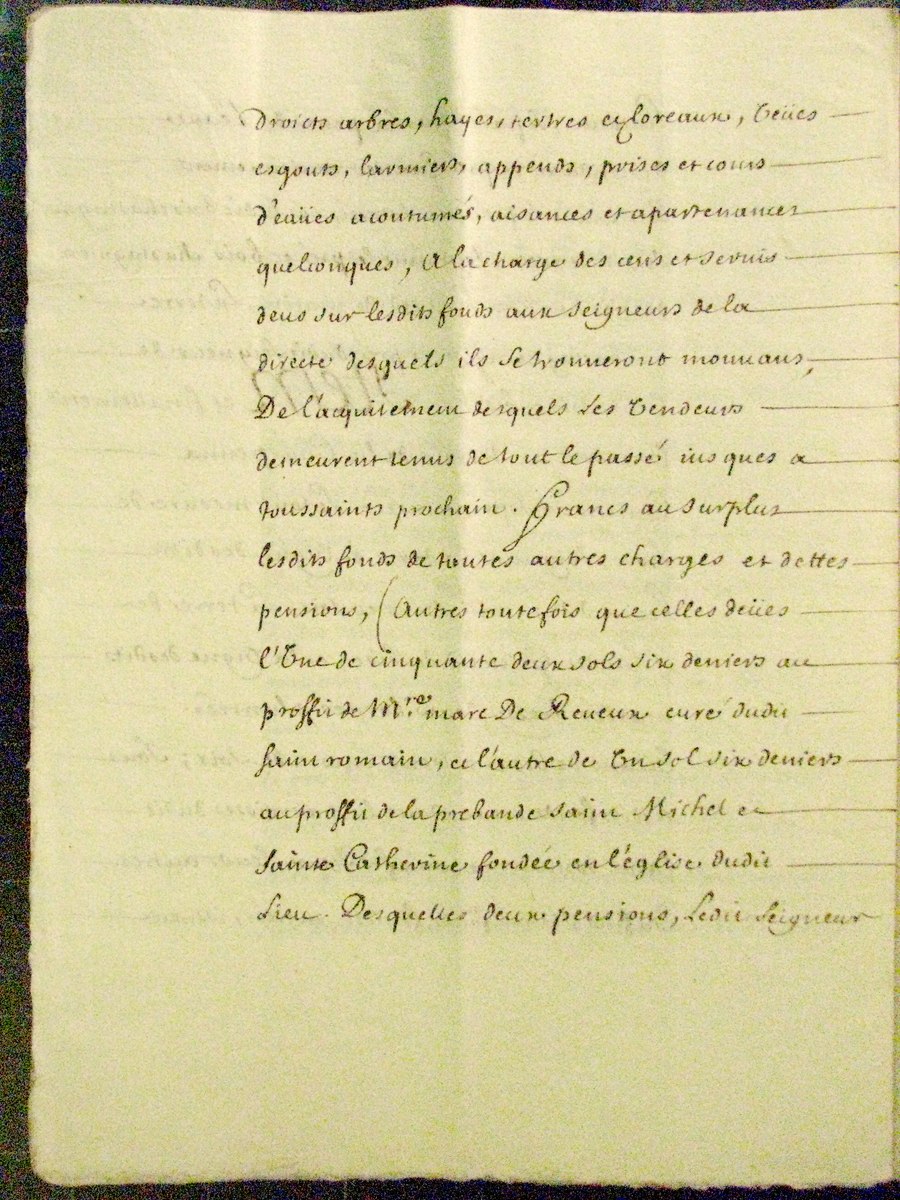 droicts arbres, hayes, tertres et cloreaux, Veües
esgouts, larmiers, appends, prises et cours
d'eaües acoutumés, aisances et apartenances
quelconques, A la charge des cens et seruis
deus sur lesdits fonds aux seigneurs de la
directe desquels ils se trouueront mouuans,
De l'acquitement desquels Les Vendeurs
demeurent tenus de tout le passé iusques a
toussaints prochain. Francs au surplus
lesdits fonds de toutes autres charges et dettes
pensions, (Autres toutefois que celles deües
l'Vne de cinquante deux sols six deniers au
proffit de Mre. marc De Reueux curé dudit
saint romain, et l'autre de Vn sol six deniers
au proffit de la prebande saint Michel et
sainte Catherine fondée en l'église dudit
Lieu. Desquelles deux pensions, Ledit Seigneur